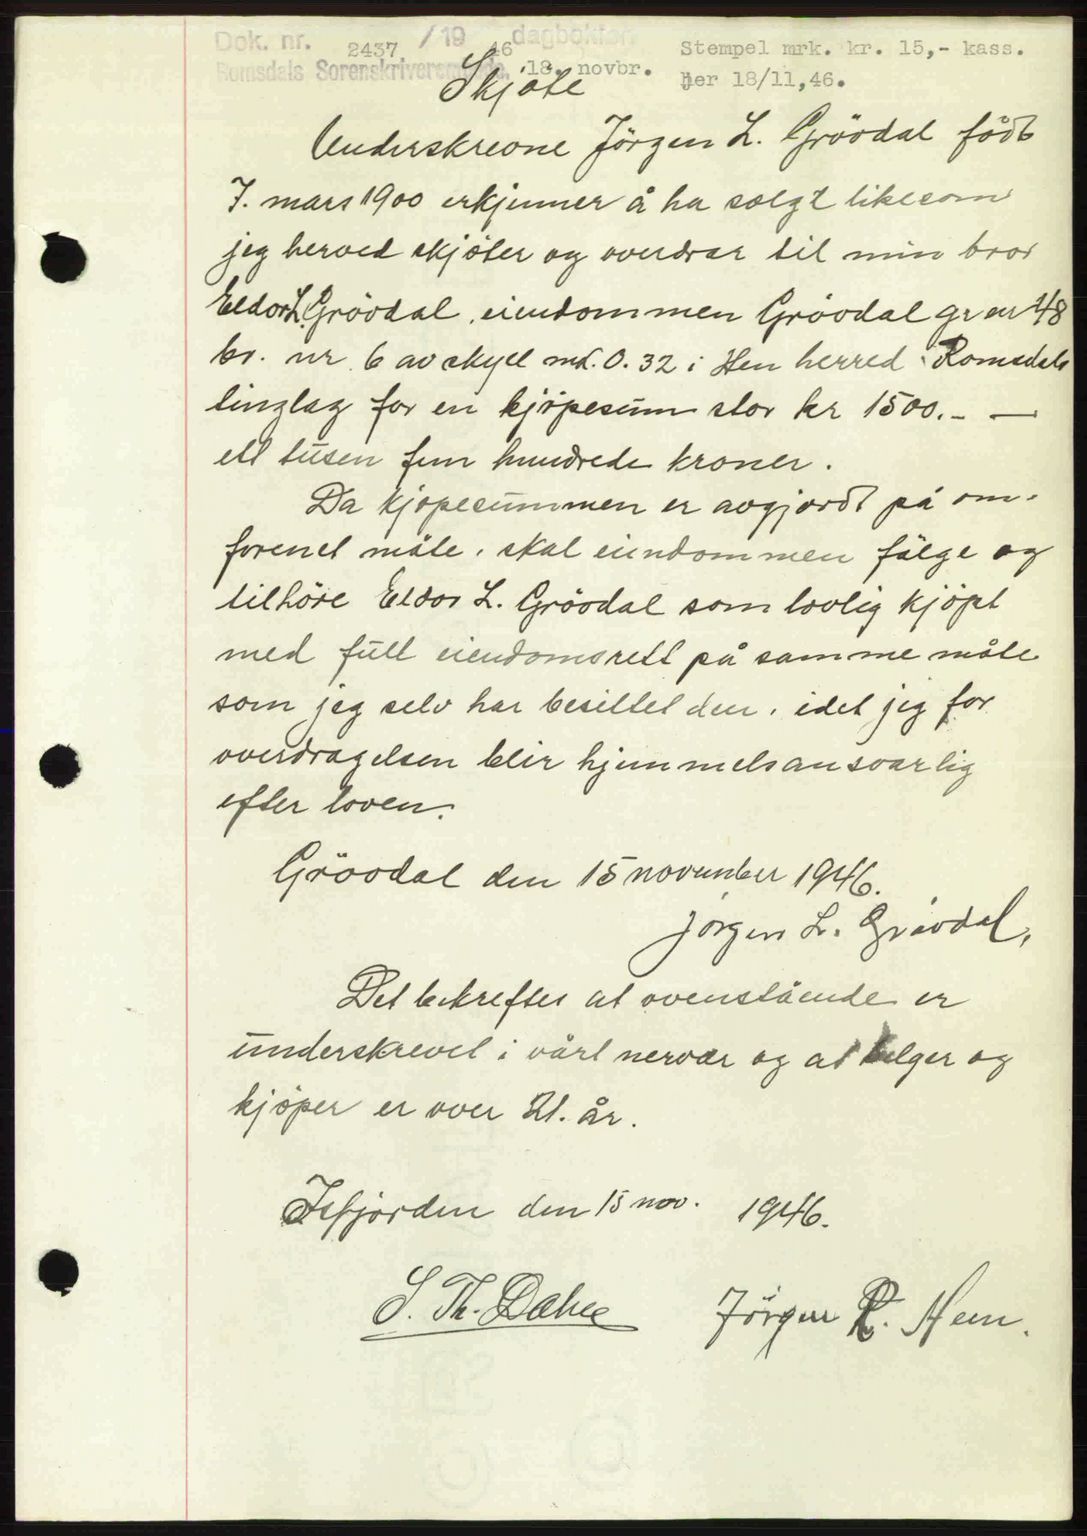 Dok. nr. 2437 /19 46 dagboken
Romsdals Sorenskriverembede. 18. novbr.
Stempel mrk. kr. 15,- kass.
her 18/11,46.
Skjöte
Underskrevne Jörgen L. Grövdal född
7. mars 1900 erkjenner å ha solgt likesom
jeg herved skjöter og overdrar til min bror
Eldor L. Grövdal, eiendommen Grövdal gr nr 48
br. nr 6 av skyll mk. 0.32 i Hen herred i Romsdals
tinglag for en kjöpesum stor kr 1500.- —
ett tusen fem hundrede kroner.
Da kjöpesummen er avgjordt på om-
forenet måte, skal eiendommen fölge og
tilhöre Eldor L. Grövdal som lovlig kjöpt
med full eiendomsrett på samme måte
som jeg selv har besittet den, idet jeg for
overdragelsen blir hjemmelsansvarlig
efter loven.
Grövdal den 15 november 1946.
Jörgen L. Grövdal.
Det bekreftes at ovenstående er
underskrevet i vårt nervær og at selger og
kjöper er over 21. år.
Isfjorden den 15 nov. 1946.
S. Th. Dahle Jörgen R. Hem.